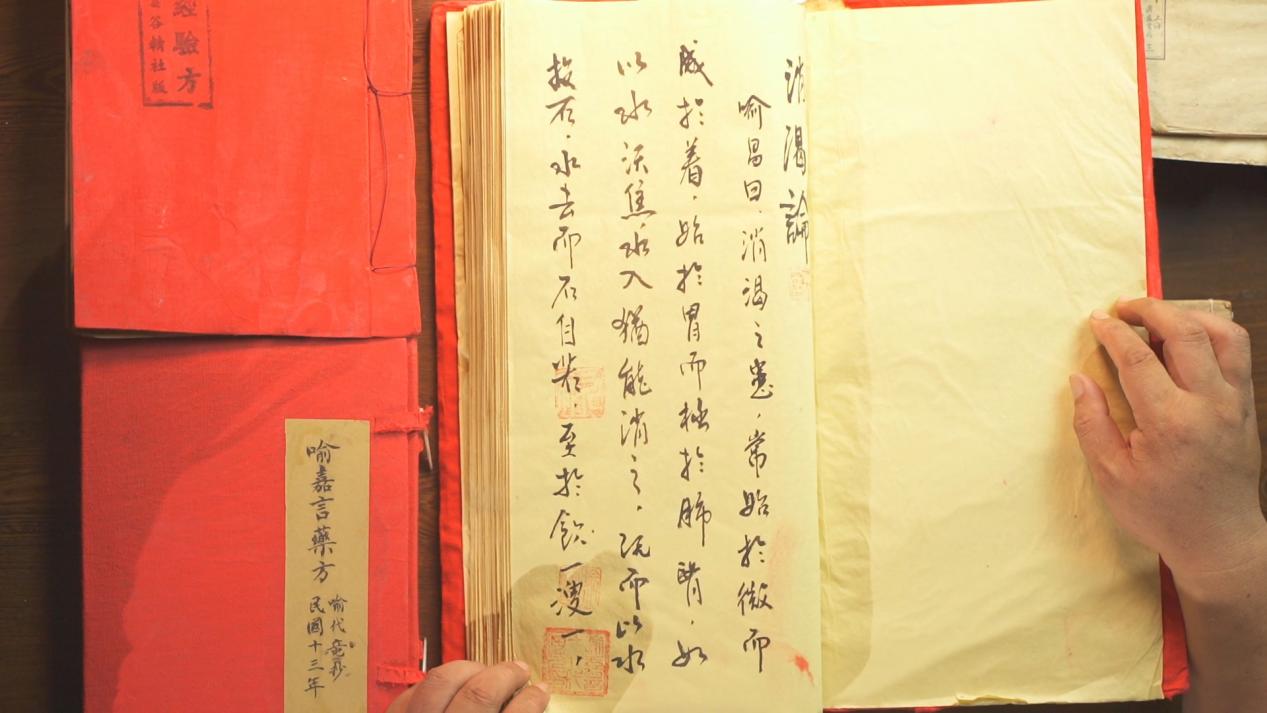 消渴論
喻昌曰．消渴之患．常始於微而
成於着．始於胃而極於肺腎．如
以水沃焦．水入猶能消之．既而以水
投石．水去而石自若．至於飲一溲一．
經驗方
精社版
喻嘉言藥方
喻代
民國十三年